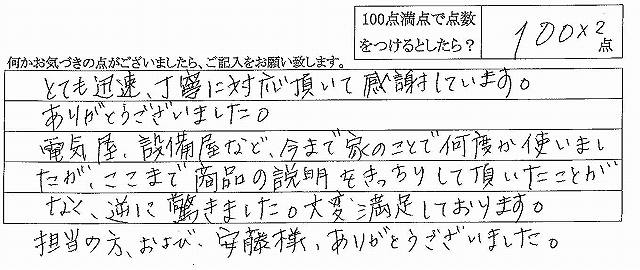 100点満点で点数
をつけるとしたら？
100×2点
何かお気づきの点がございましたら、ご記入をお願い致します。
とても迅速、丁寧に対応頂いて感謝しています。
ありがとうございました。
電気屋、設備屋など、今まで家のことで何度か使いまし
たが、ここまで商品の説明をきっちりして頂いたことが
なく、逆に驚きました。大変満足しております。
担当の方、および、安藤様、ありがとうございました。